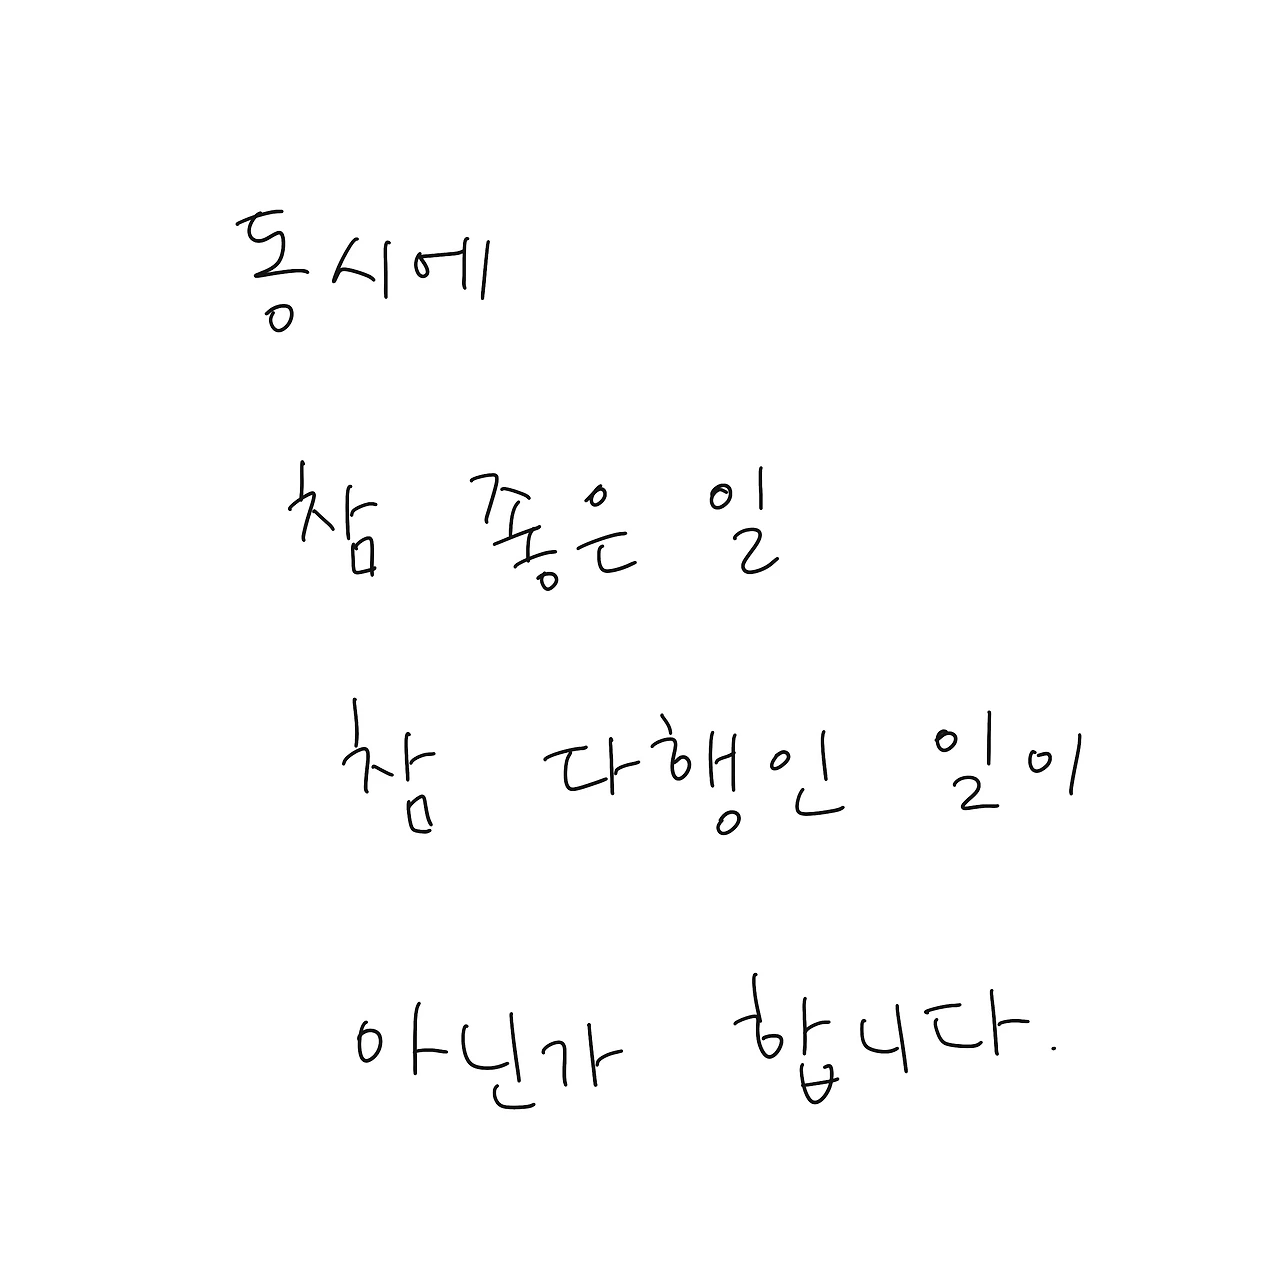 동시에
참 좋은 일
참 다행인 일이
아닌가 합니다.